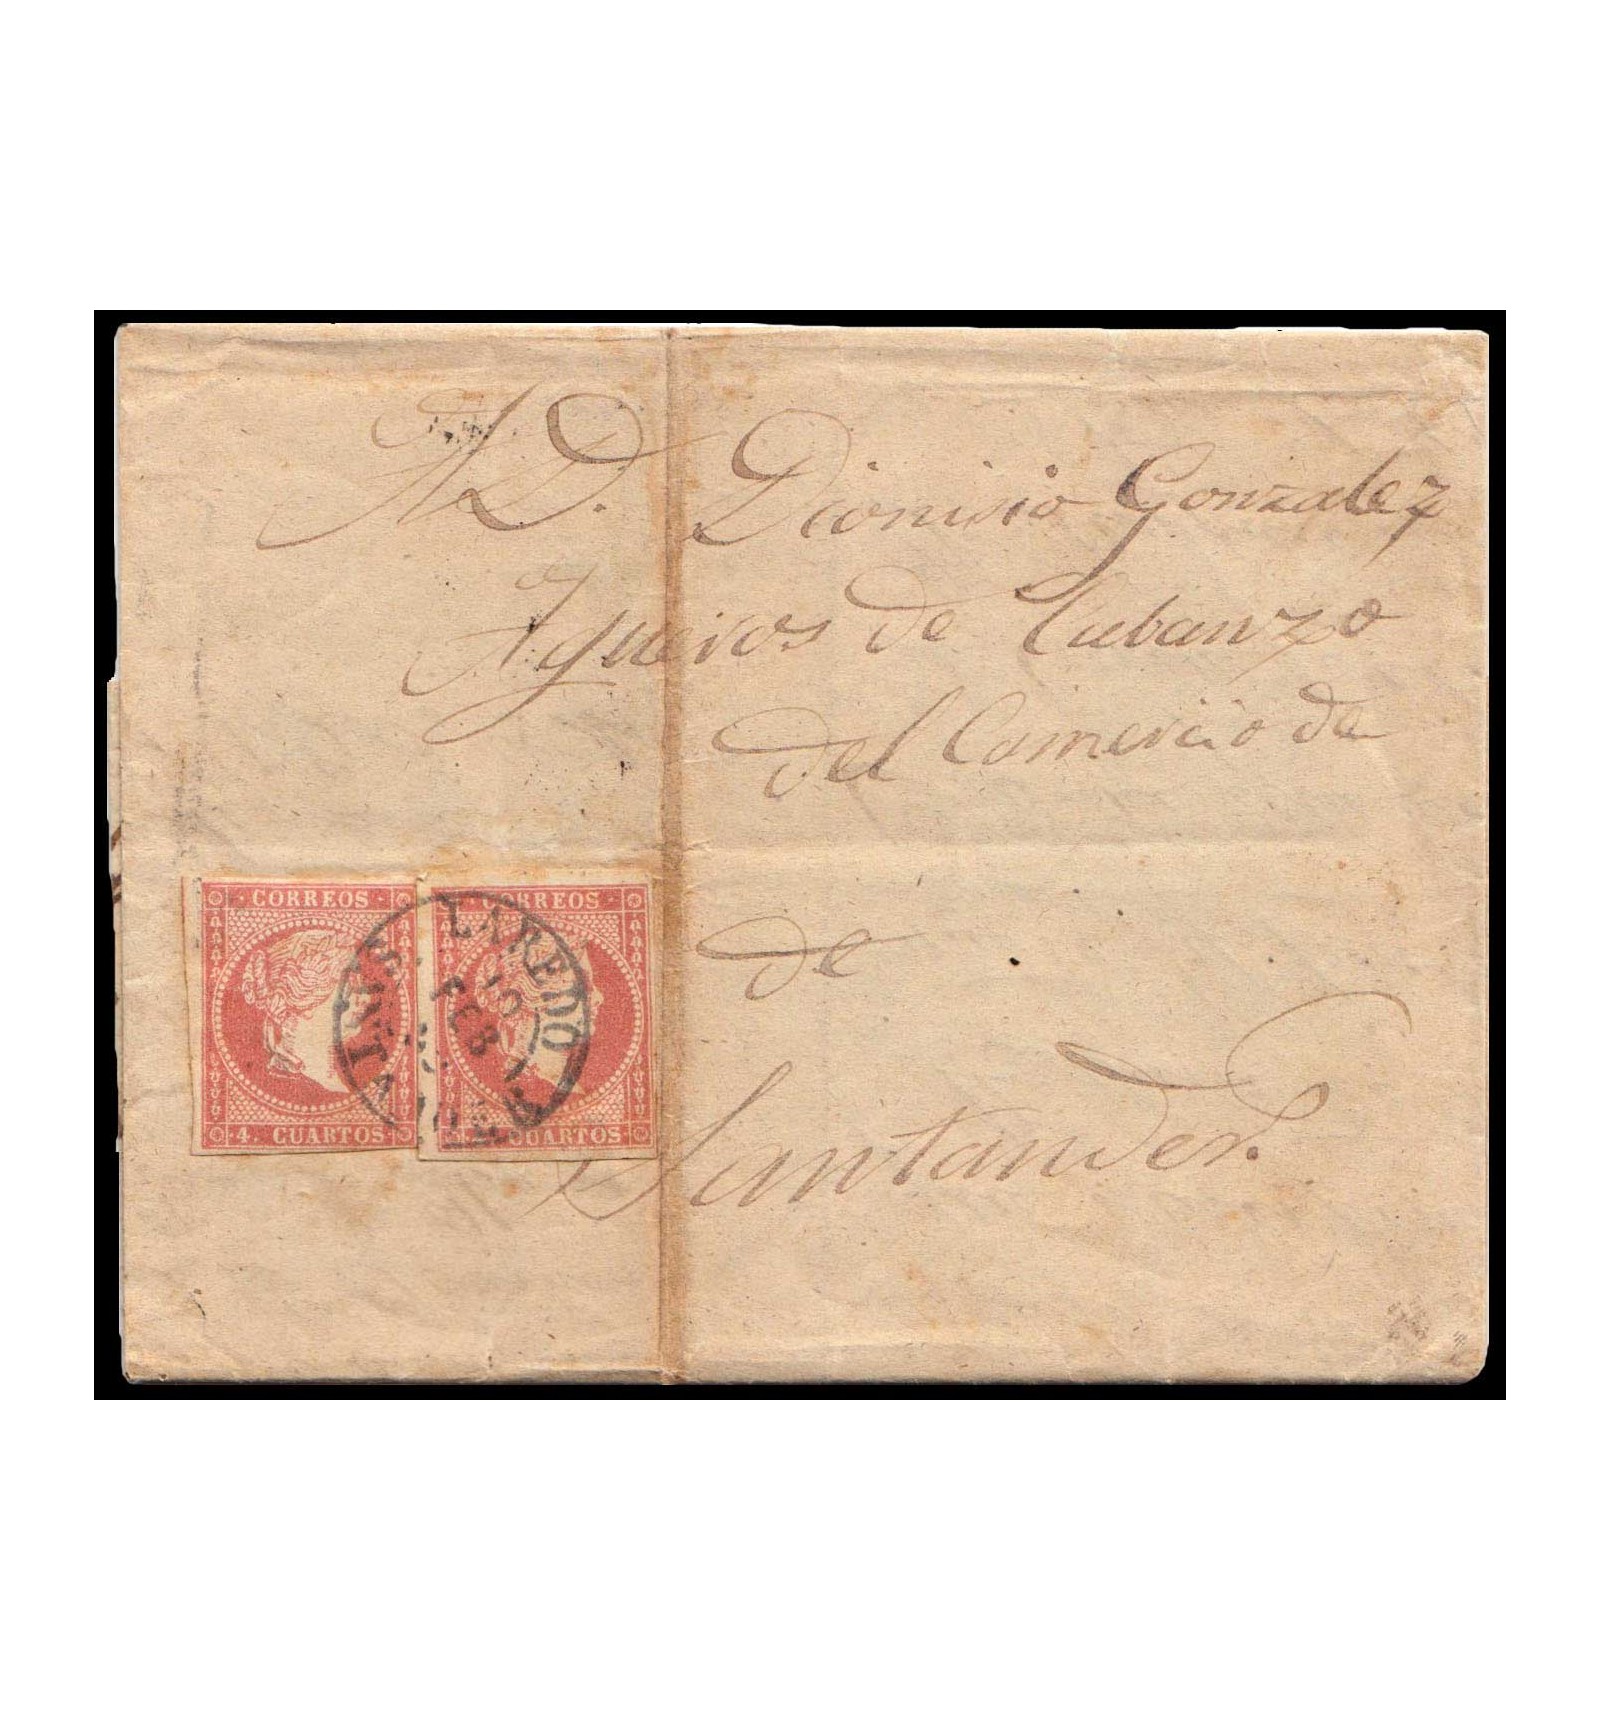 A D. Dionisio Gonzalez
Agueros de Cubanzo
del Comercio de
de
Santander.
CORREOS
4. CUARTOS
CORREOS
CUARTOS
LAREDO
10
FEB
SANT